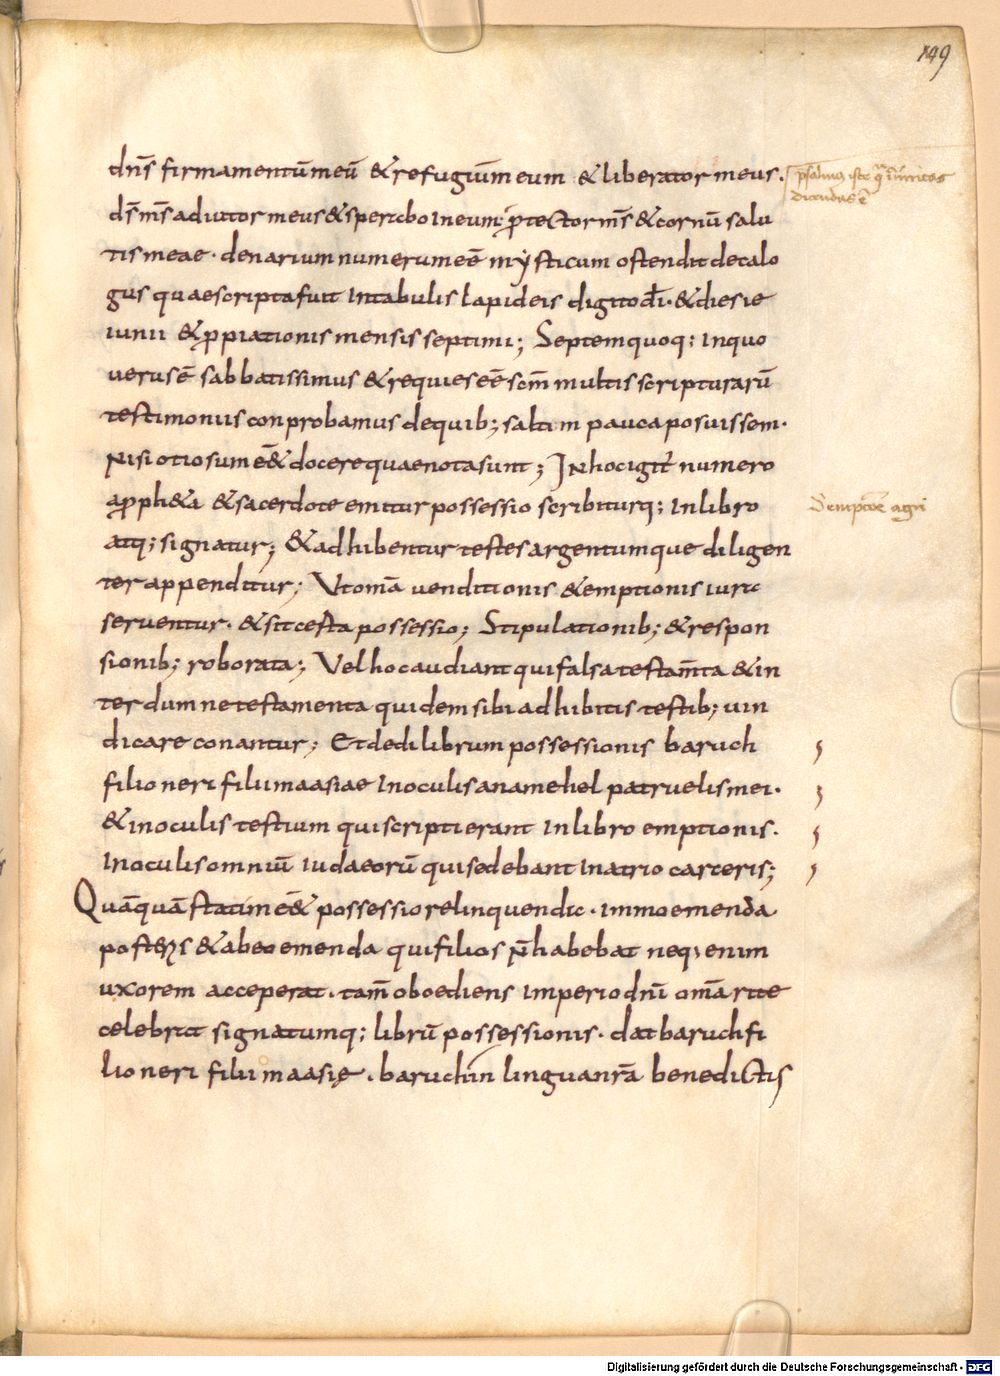 149
dn̄s firmamentū meū & refugiū meum & liberator meus.
psalmus iste
dicendus ē
d̄s m̄s adiutor meus & sperabo in eum. p̄tector m̄s & cornū salu
tis meae. denarium numerum eē mysticum ostendit decalo
gus quae scripta fuit in tabulis lapideis digito dī. & dies ie
iunii & ppiationis mensis septimi; Septem quoq; in quo
uerus ē sabbatissimus & requies eē scm̄ multis scripturarū
testimoniis conprobamus de quib; saltim pauca posuissem.
Nisi otiosum eē & docere quae nota sunt; In hoc igit̄ numero
a pph&a & sacerdote emitur possessio scribiturq; in libro
De emptiōe agri
atq; signatur; & adhibentur testes argentumque diligen
ter appenditur; Ut om̄a uenditionis & emptionis iura
seruentur. & sit certa possessio; Stipulationib; & respon
sionib; roborata; Vel hoc audiant qui falsa testam̄ta & in
terdum ne testamenta quidem sibi adhibitis testib; uin
dicare conantur; Et dedi librum possessionis baruch
filio neri filii maasiae in oculis anamehel patruelis mei.
& in oculis testium qui scripti erant in libro emptionis.
In oculis omniū iudaeorū qui sedebant in atrio carceris;
Quāquā statim eē & possessio relinquenda. immo emenda
post eos & ab eo emenda qui filios n̄ habebat neq; enim
uxorem acceperat. tam̄ oboediens imperio dn̄i om̄a rite
celebrat signatumq; librū possessionis. dat baruch fi
lio neri filii maasię. baruch in lingua nr̄a benedictus
Digitalisierung gefördert durch die Deutsche Forschungsgemeinschaft - DFG